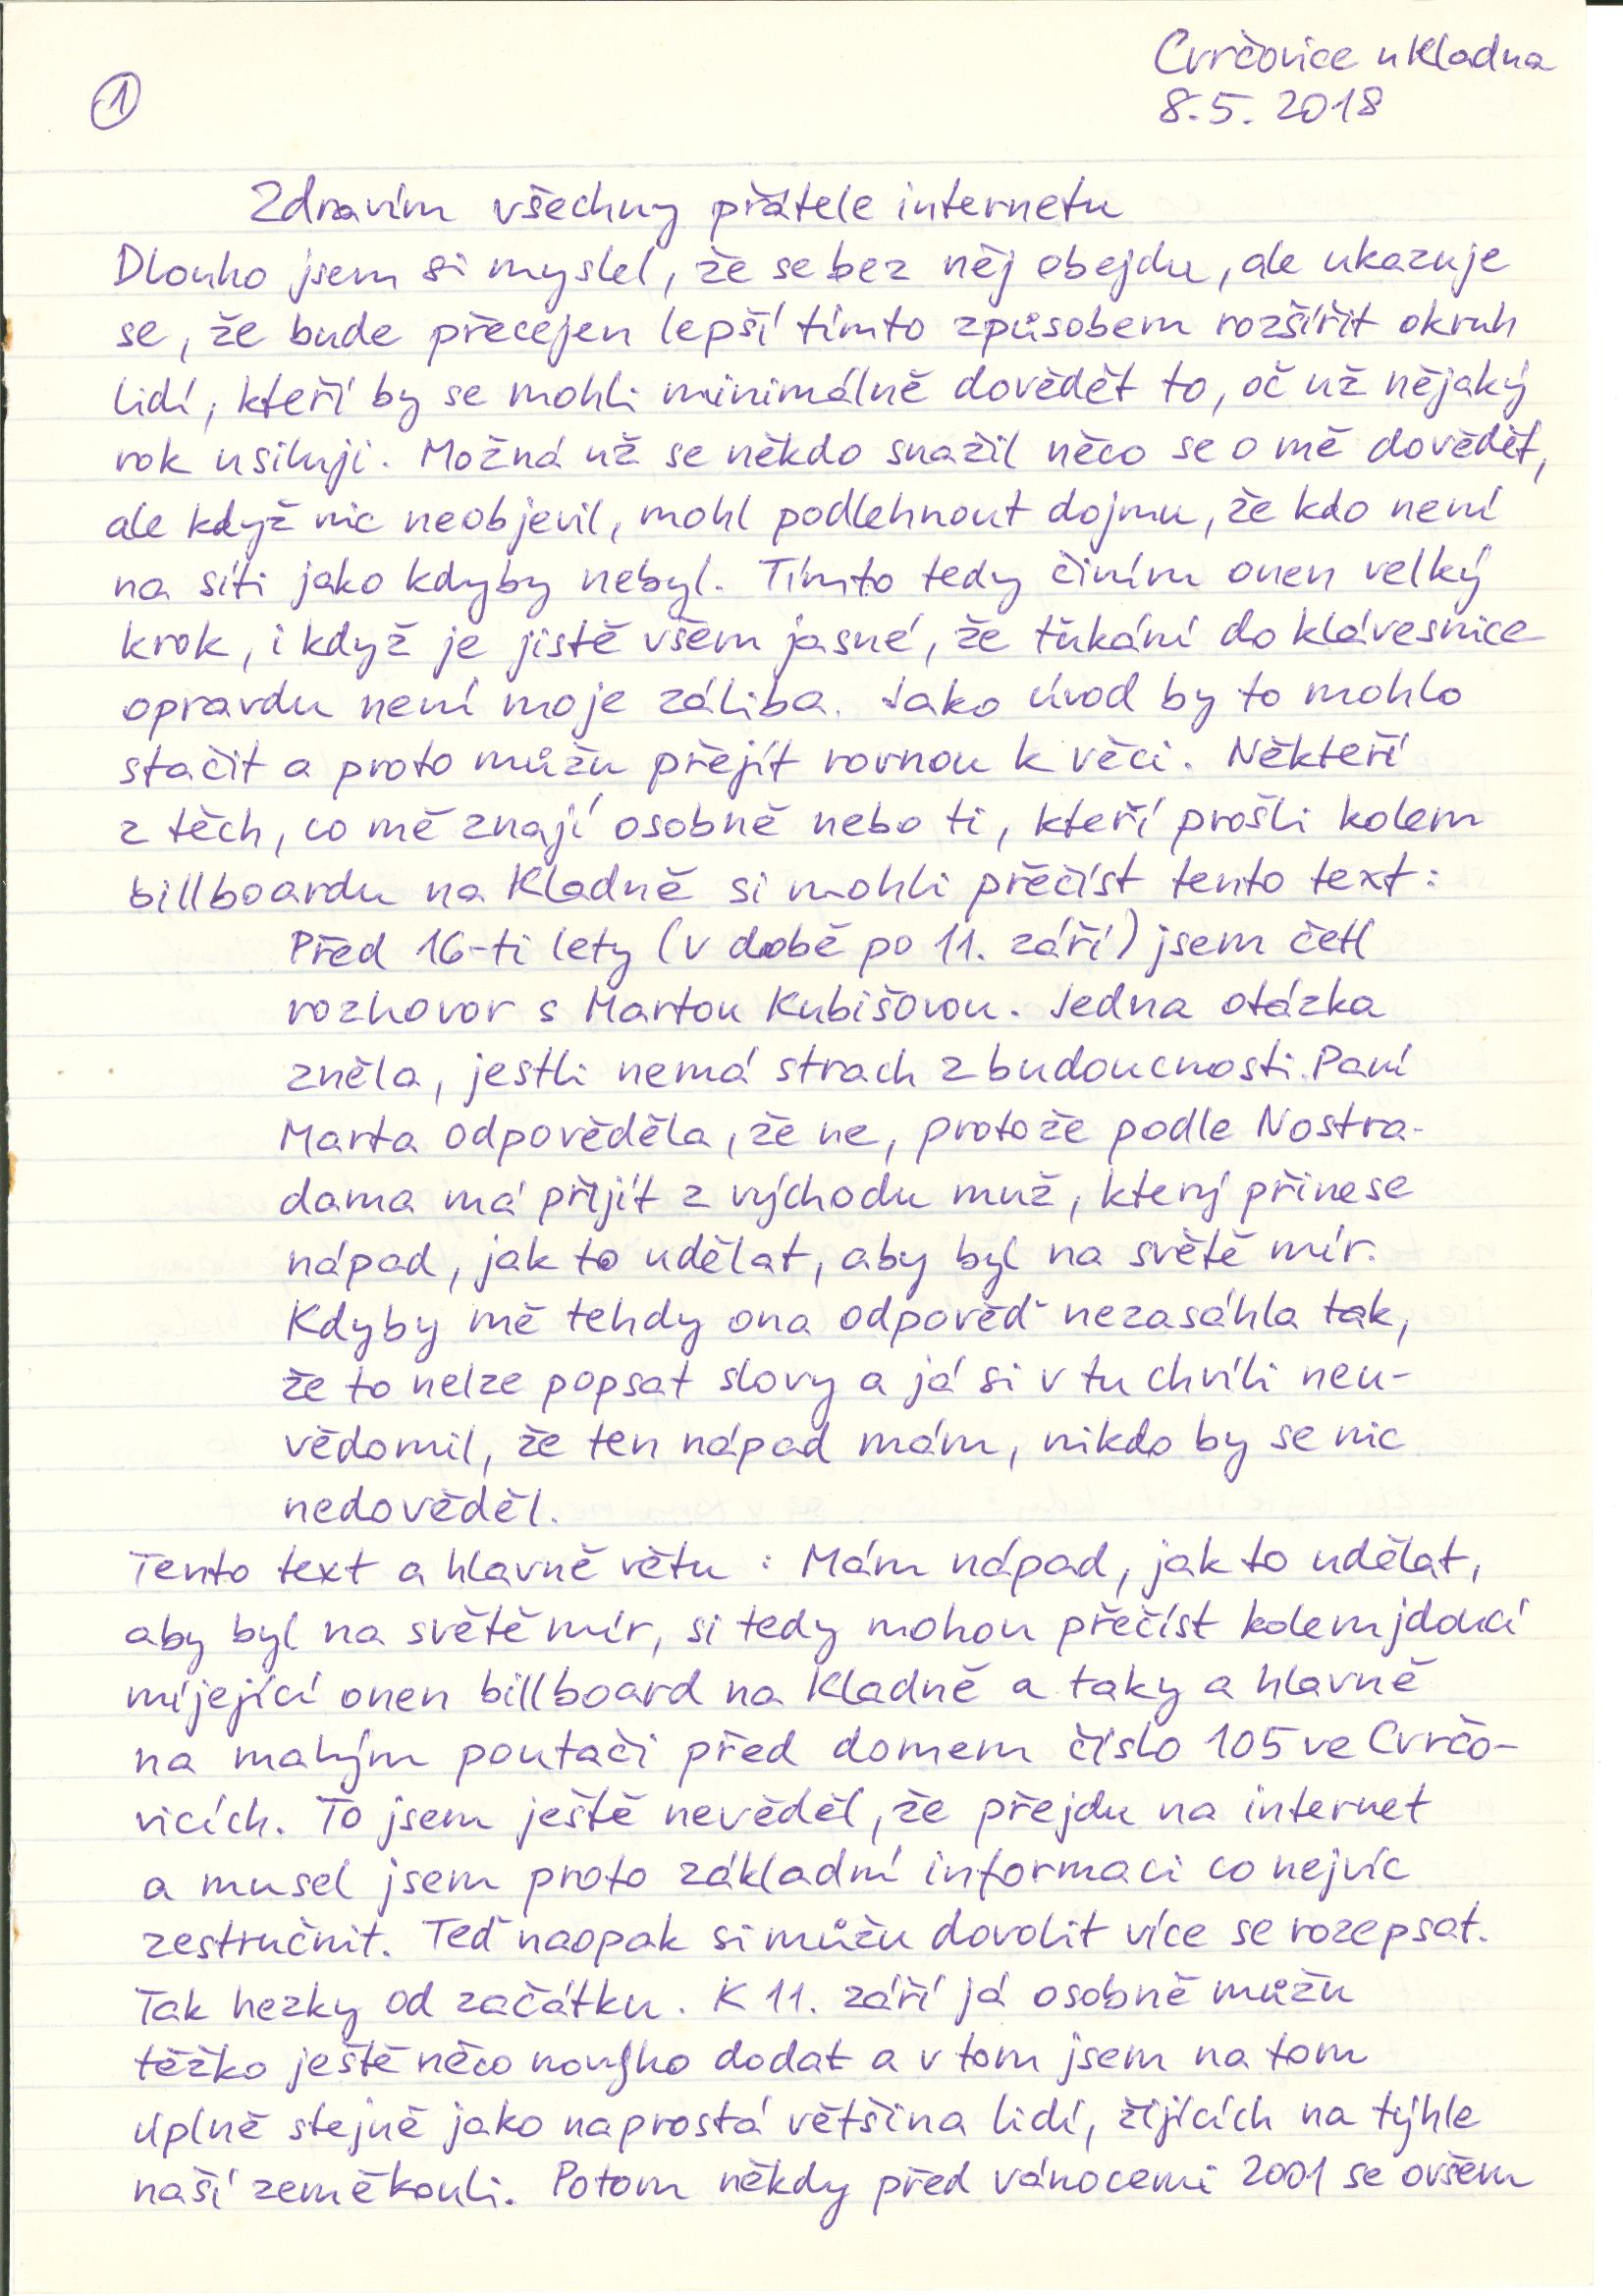 Cvrčovice u Kladna
1
8.5. 2018
Zdravím všechny přátele internetu
Dlouho jsem si myslel, že se bez něj obejdu, ale ukazuje
se, že bude přecejen lepší tímto způsobem rozšířit okruh
lidí, kteří by se mohli minimálně dovědět to, oč už nějaký
rok usiluji. Možná už se někdo snažil něco se o mě dovědět,
ale když nic neobjevil, mohl podlehnout dojmu, že kdo není
na síti jako kdyby nebyl. Tímto tedy činím onen velký
krok, i když je jistě všem jasné, že ťukání do klávesnice
opravdu není moje záliba. Jako úvod by to mohlo
stačit a proto můžu přejít rovnou k věci. Někteří
z těch, co mě znají osobně nebo ti, kteří prošli kolem
billboardu na Kladně si mohli přečíst tento text:
Před 16-ti lety (v době po 11. září) jsem četl
rozhovor s Martou Kubišovou. Jedna otázka
zněla, jestli nemá strach z budoucnosti. Paní
Marta odpověděla, že ne, protože podle Nostra-
dama má přijít z východu muž, který přinese
nápad, jak to udělat, aby byl na světě mír.
Kdyby mě tehdy ona odpověď nezasáhla tak,
že to nelze popsat slovy a já si v tu chvíli neu-
vědomil, že ten nápad mám, nikdo by se nic
nedověděl.
Tento text a hlavně větu : Mám nápad, jak to udělat,
aby byl na světě mír, si tedy mohou přečíst kolemjdoucí
míjející onen billboard na Kladně a taky a hlavně
na malým poutači před domem číslo 105 ve Cvrčo-
vicích. To jsem ještě nevěděl, že přejdu na internet
a musel jsem proto základní informaci co nejvíc
zestručnit. Teď naopak si můžu dovolit více se rozepsat.
Tak hezky od začátku. K 11. září já osobně můžu
těžko ještě něco novýho dodat a v tom jsem na tom
úplně stejně jako naprostá většina lidí, žijících na týhle
naší zeměkouli. Potom někdy před vánocemi 2001 se ovšem